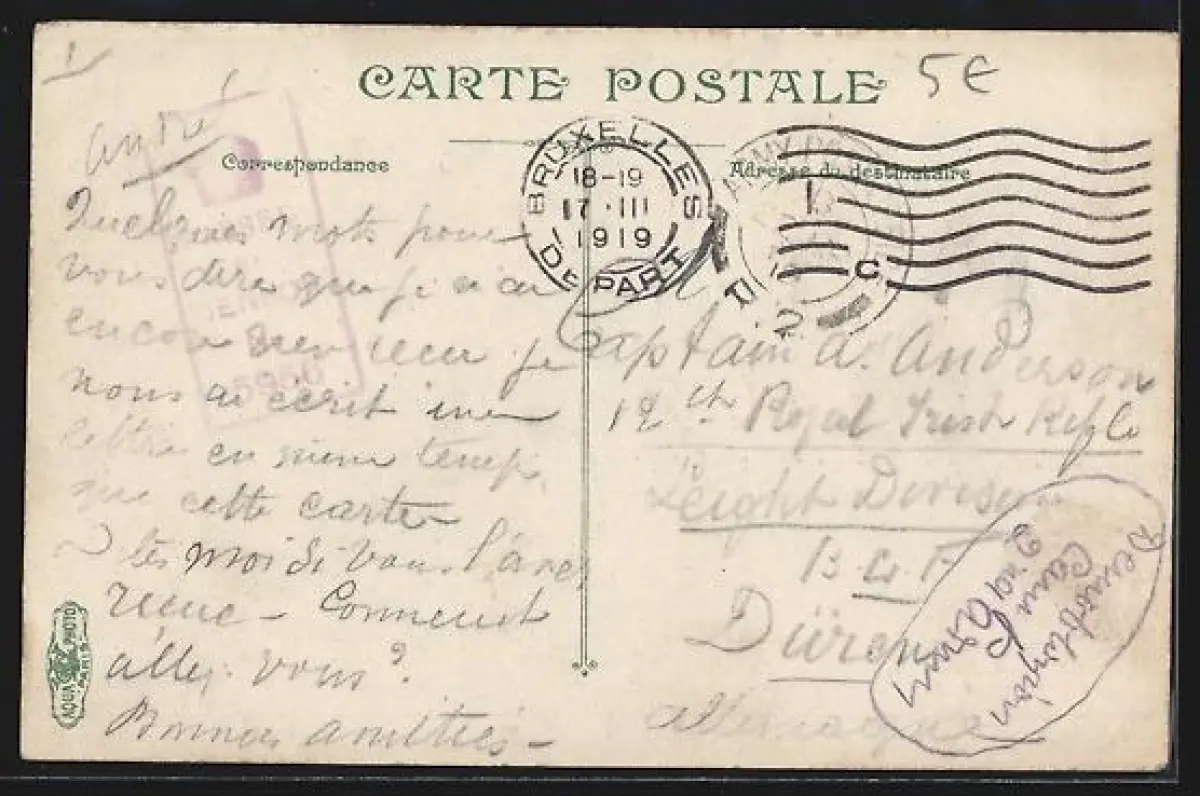 CARTE POSTALE
5€
André
Correspondance
Adresse du destinataire
BRUXELLES
18-19
17·III
1919
DEPART
ARMY
Quelques mots pour
vous dire que je n'ai
encore rien reçu je
vous ai écrit une
lettre en même temps
que cette carte
Dites moi si vous l'avez
reçue - Comment
allez-vous?
Bonnes amitiés -
5950
Captain A. Anderson
12th Royal Irish Rifle
Leight Division
B.E.F
Düren
Allemagne
Demobilization
Camp
AQUA PHOTO
PARIS